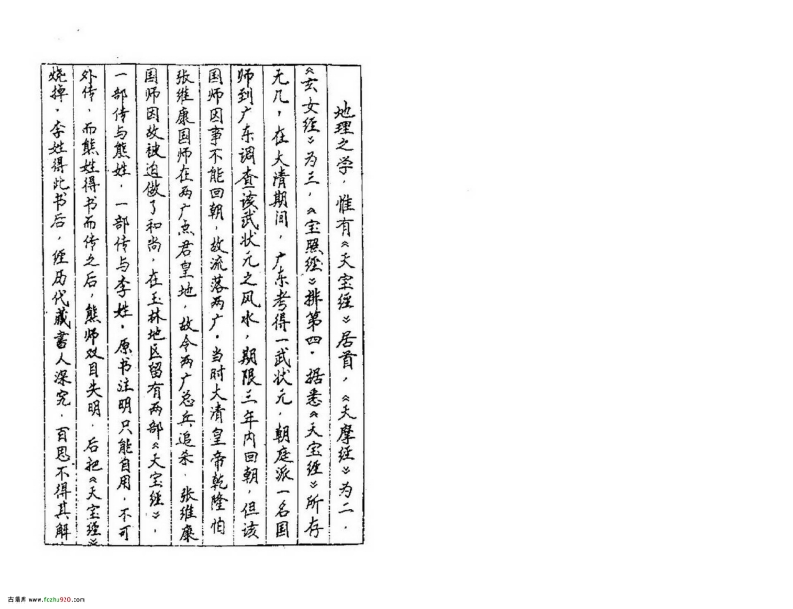 地理之学．惟有《天宝经》居首，《天摩经》为二．
《玄女经》为三，《宝照经》排第四．据悉《天宝经》所存
无几，在大清期间，广东考得一武状元，朝庭派一名国
师到广东调查该武状元之风水，期限三年内回朝，但该
国师因事不能回朝，故流落两广．当时大清皇帝乾隆怕
张维康国师在两广点君皇地，故令两广总兵追杀．张维康
国师因故被迫做了和尚，在玉林地区留有两部《天宝经》，
一部传与熊姓．一部传与李姓．原书注明只能自用，不可
外传，而熊姓得书而传之后，熊师双目失明．后把《天宝经》
烧掉．李姓得此书后，经历代藏書人深究．百思不得其解，
古籍库 www.fczhu920.com